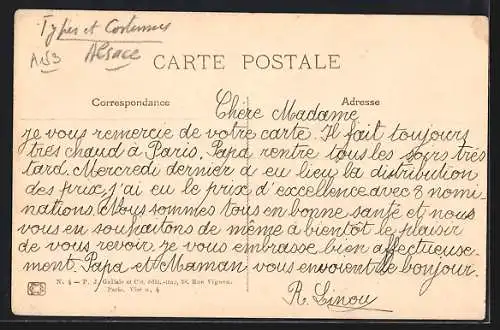 Types et Costumes
Alsace
CARTE POSTALE
Correspondance
Adresse
Chère Madame
je vous remercie de votre carte. Il fait toujours
très chaud à Paris. Papa rentre tous les soirs très
tard. Mercredi dernier a eu lieu la distribution
des prix, j'ai eu le prix d'excellence avec 8 nomi-
nations. Nous sommes tous en bonne santé et nous
vous en souhaitons de même à bientôt le plaisir
de vous revoir. je vous embrasse bien affectueuse-
ment. Papa et Maman vous envoient le bonjour.
R. Linou
N. 4 - P. J. Gallais et Cie, édit.-imp, 38, Rue Vignon,
Paris. Visé n. 4